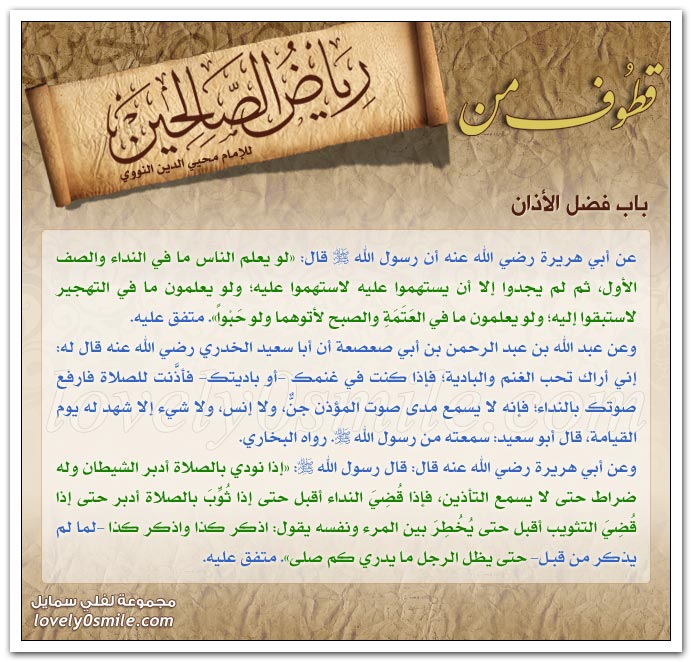 قطوف من
رِيَاضُ الصَّالِحِين
للإمام محيي الدين النووي
باب فضل الأذان
عن أبي هريرة رضي الله عنه أن رسول الله ﷺ قال: «لو يعلم الناس ما في النداء والصف
الأول، ثم لم يجدوا إلا أن يستهموا عليه لاستهموا عليه؛ ولو يعلمون ما في التهجير
لاستبقوا إليه؛ ولو يعلمون ما في العَتَمَةِ والصبح لأتوهما ولو حَبْواً». متفق عليه.
وعن عبد الله بن عبد الرحمن بن أبي صعصعة أن أبا سعيد الخدري رضي الله عنه قال له:
إني أراك تحب الغنم والبادية؛ فإذا كنت في غنمك -أو باديتك- فأذَّنت للصلاة فارفع
صوتك بالنداء؛ فإنه لا يسمع مدى صوت المؤذن جنٌّ، ولا إنس، ولا شيء إلا شهد له يوم
القيامة، قال أبو سعيد: سمعته من رسول الله ﷺ. رواه البخاري.
وعن أبي هريرة رضي الله عنه قال: قال رسول الله ﷺ: «إذا نودي بالصلاة أدبر الشيطان وله
ضراط حتى لا يسمع التأذين، فإذا قُضِيَ النداء أقبل حتى إذا ثُوِّبَ بالصلاة أدبر حتى إذا
قُضِيَ التثويب أقبل حتى يُخْطِرَ بين المرء ونفسه يقول: اذكر كذا واذكر كذا -لما لم
يذكر من قبل- حتى يظل الرجل ما يدري كم صلى». متفق عليه.
lovely0smile.com
مجموعة لفلي سمايل
lovely0smile.com